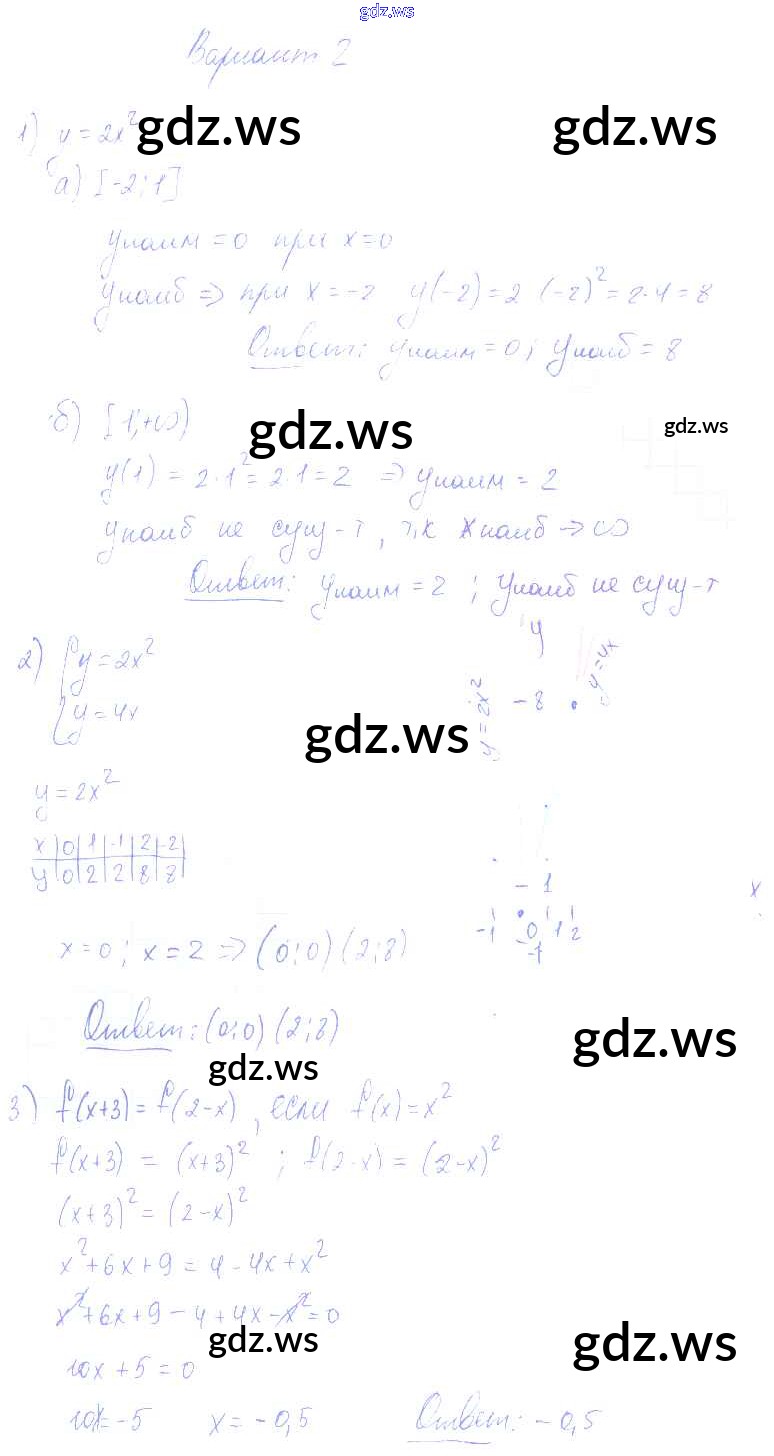 gdz.ws
Вариант 2
1) y = 2x² gdz.ws gdz.ws
а) [-2; 1]
yнаим = 0 при x = 0
yнаиб => при x = -2 y(-2) = 2 (-2)² = 2·4 = 8
Ответ: yнаим = 0; yнаиб = 8
б) [1; +∞) gdz.ws gdz.ws
y(1) = 2·1² = 2·1 = 2 => yнаим = 2
yнаиб не сущ-т, т.к xнаиб → ∞
Ответ: yнаим = 2; yнаиб не сущ-т
2) { y = 2x²
y = 4x
gdz.ws
y = 2x²
x | 0 | 1 | -1 | 2 | -2
y | 0 | 2 | 2 | 8 | 8
y
y = 2x² - 8 y = 4x
- 1 x
-1 0 1 2
-1
x = 0; x = 2 => (0; 0) (2; 8)
Ответ: (0; 0) (2; 8)
gdz.ws gdz.ws
3) f(x+3) = f(2-x), если f(x) = x²
f(x+3) = (x+3)² ; f(2-x) = (2-x)²
(x+3)² = (2-x)²
x² + 6x + 9 = 4 - 4x + x²
x² + 6x + 9 - 4 + 4x - x² = 0
gdz.ws gdz.ws
10x + 5 = 0
10x = -5 x = -0,5 Ответ: -0,5